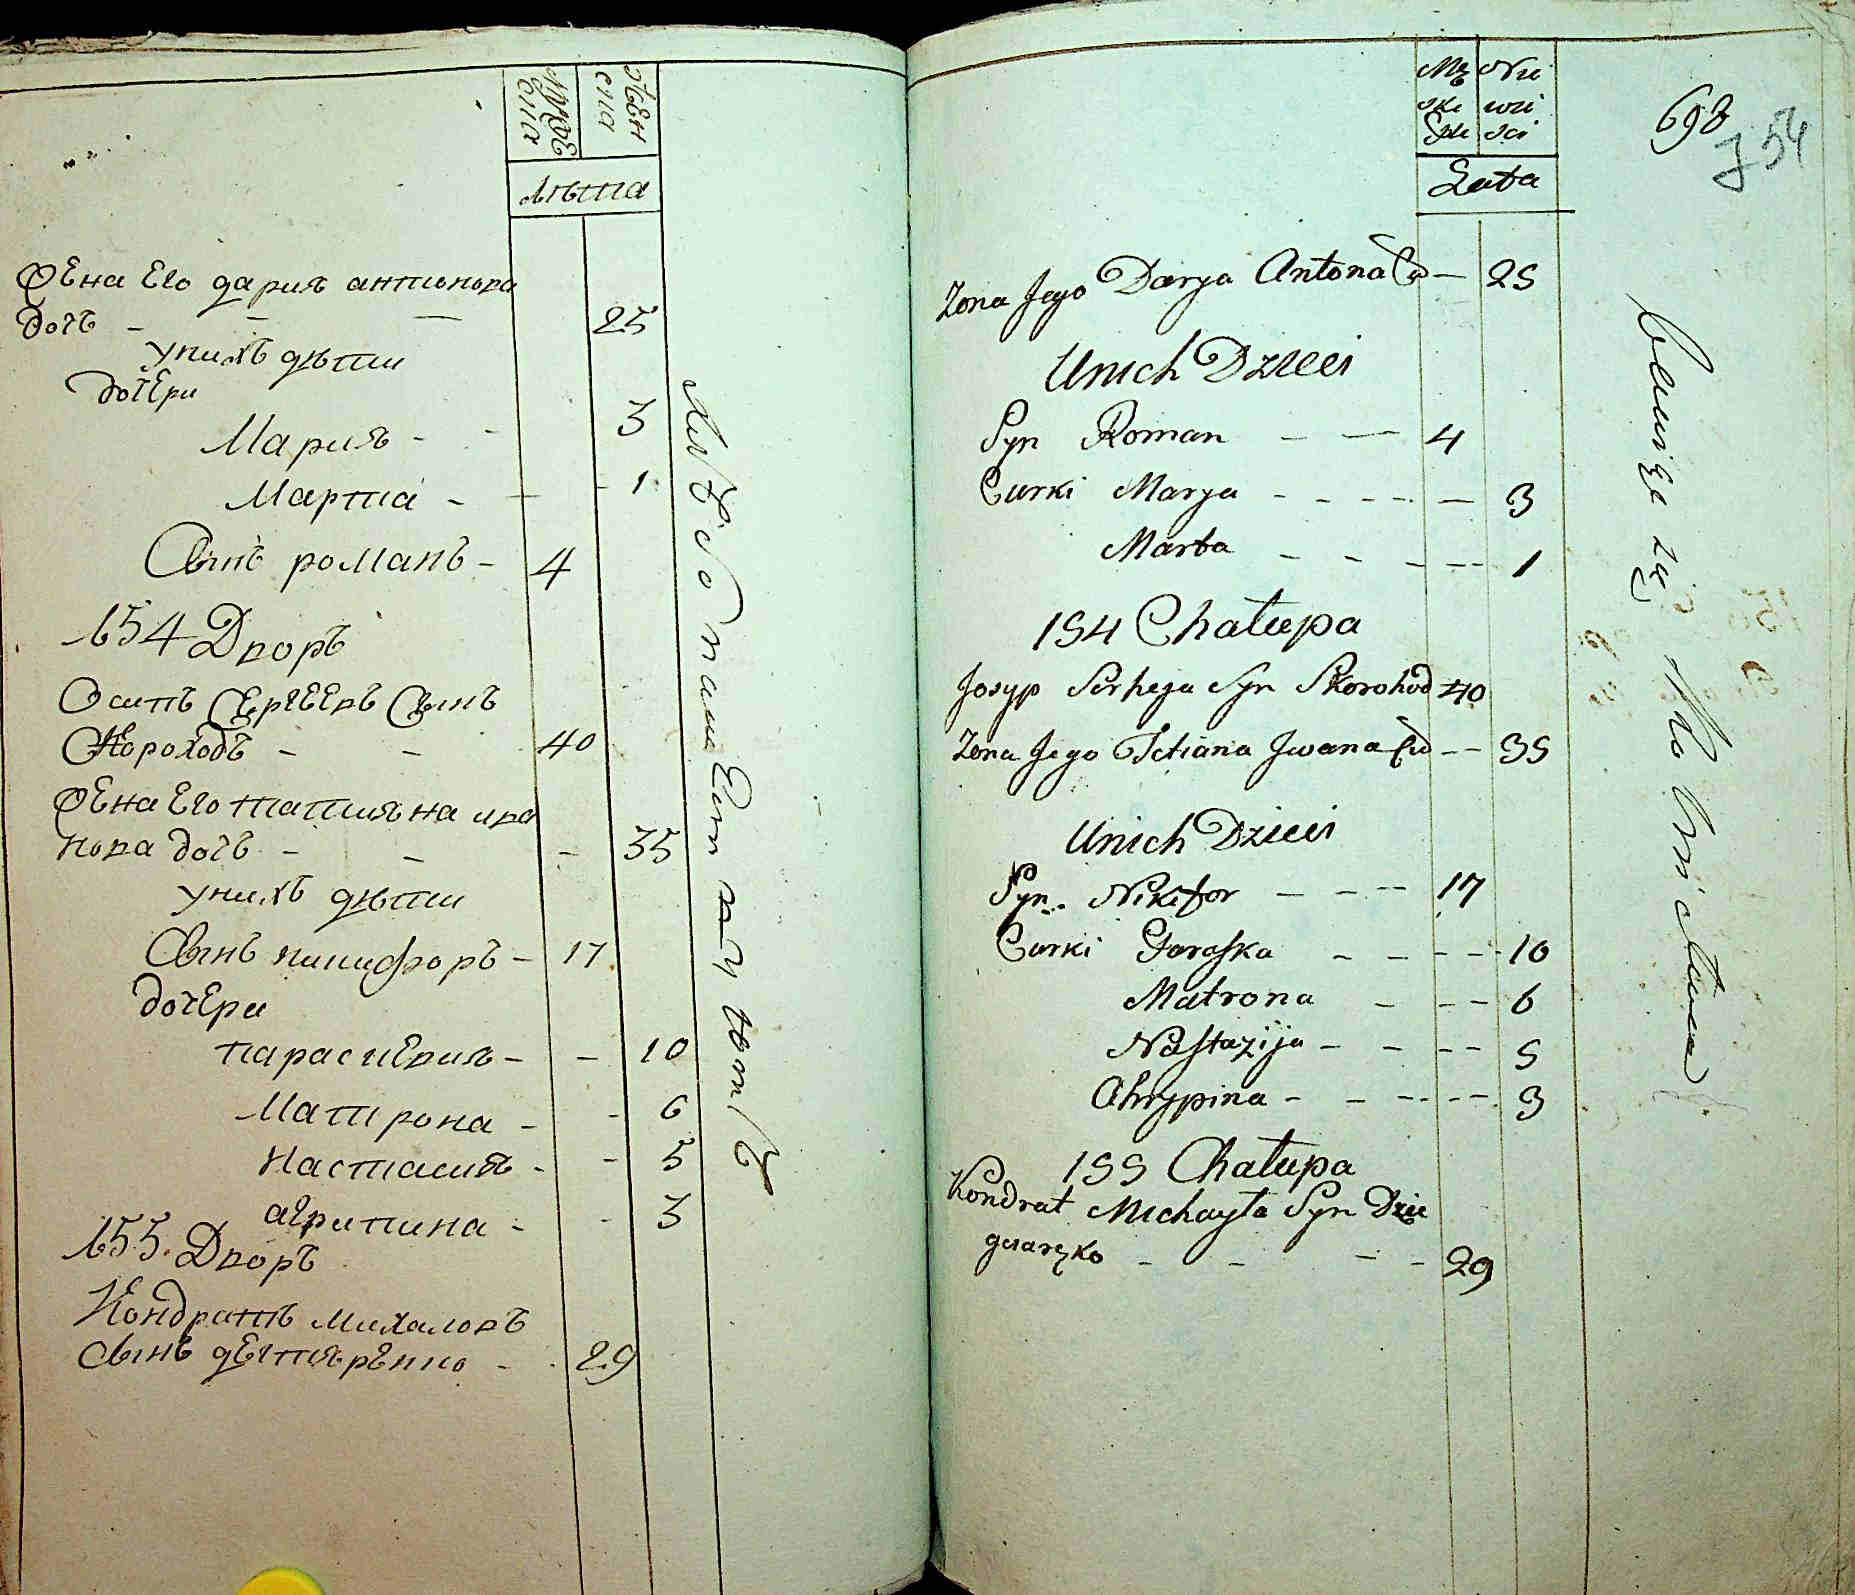 мужеска
женска
лѣта
жена его дария антонова
дочь - - - 25
у нихъ дѣти
дочери
Мария - - 3
Марта - - - 1
Сынъ романъ - 4
154 Дворъ
Осипъ Сергеевъ Сынъ
Скороходъ - - 40
жена его татияна ива
нова дочь - - - 35
у нихъ дѣти
Сынъ никифоръ - 17
дочери
парасковия - - 10
Матрона - - 6
настасия - - 5
агрипина - - 3
155 Дворъ
Кондратъ Михаловъ
Сынъ дегтяренко - 29
Mę Nie
ske wie
sci
Lata
698
754
Zona Jego Darya Antona Cu - 25
Unich Dzieci
Syn Roman - - 4
Curki Marya - - - - - 3
Marta - - - - - 1
154 Chalupa
Josyp Serheja Syn Skorohod 40
Zona Jego Tetiana Jwana Cu - - 35
Unich Dzieci
Syn Nikifor - - - 17
Curki Paraska - - - - 10
Matrona - - - 6
Nastazija - - - - 5
Ahrypina - - - - - 3
155 Chalupa
Kondrat Michayla Syn Dzie
gciarzko - - - - 29